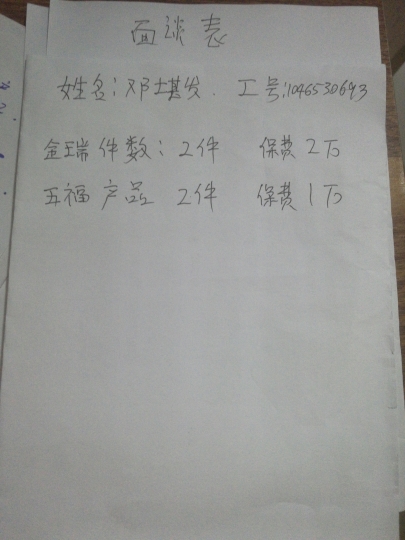 面谈表
姓名：邓堪发. 工号：1046530693
金瑞件数：2件 保费2万
五福产品 2件 保费1万